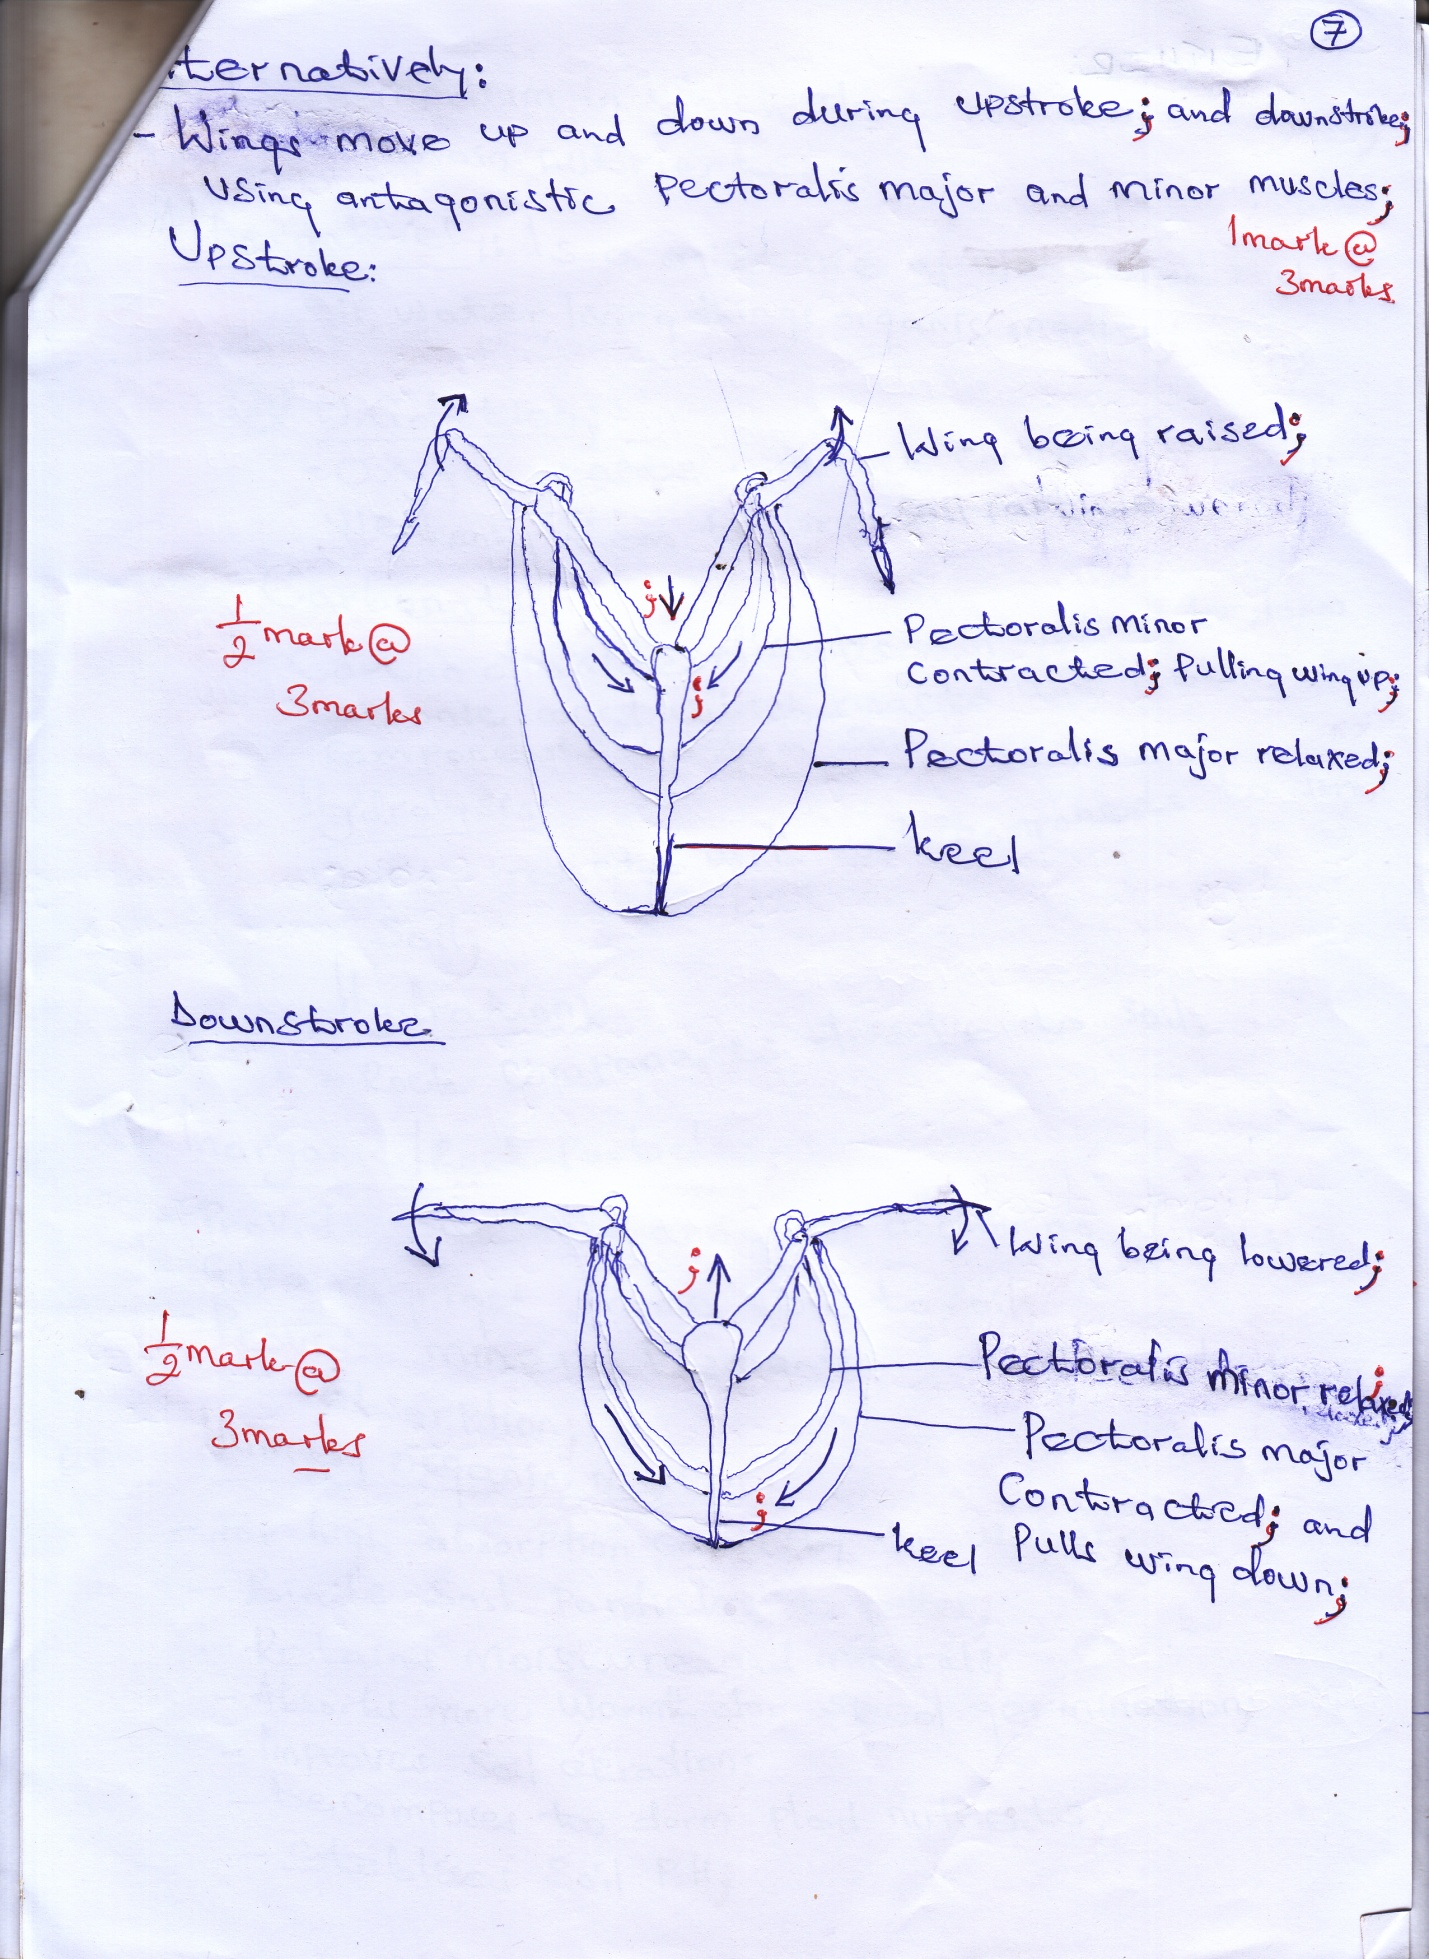 7
ternatively:
- Wings move up and down during upstroke; and downstroke;
using antagonistic Pectoralis major and minor muscles;
1mark@
3marks
Upstroke:
Wing being raised;
;
1/2 mark@
3marks
Pectoralis minor
Contracted; Pulling wing up;
;
Pectoralis major relaxed;
keel
Downstroke
;
Wing being lowered;
1/2 mark@
3marks
Pectoralis minor relaxed;
Pectoralis major
Contracted; and
Pulls wing down;
;
keel